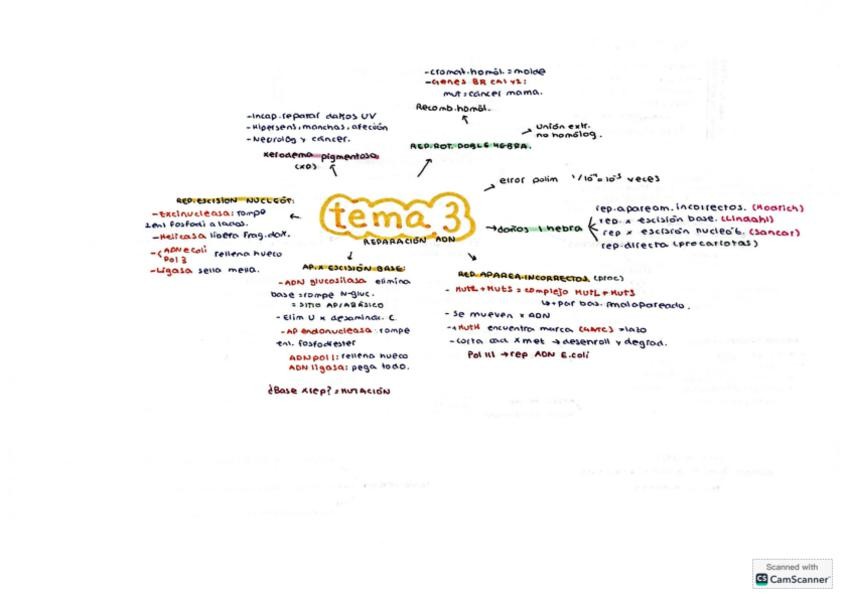 -cromat.homól.=molde
-Genes BRCA1y2:
mut=cáncer mama.
Recomb.homól.
-Incap.reparar daños UV
-Hipersens, manchas, afección
-Neurológ y cáncer.
xerodema pigmentosa
(XD)
REP.ROT.DOBLE HEBRA.
unión extr.
no homólog.
error polim
veces
REP.ESCISIÓN NUCLEÓT:
-Excinucleasa: rompe
2enl fosfodi a lados.
-Helicasa libera Frag.dañ.
-(ADN E coli
Pol 3
rellena hueco
-Ligasa sella mella.
tema 3
REPARACIÓN ADN
→daños 1 hebra
rep.apaream.incorrectos.(Modrich)
rep. x escisión base.(Lindahl)
rep x escisión nucleót.(Sancar)
rep.directa (procariotas)
AP.X ESCISIÓN BASE:
-ADN glucosilasa elimina
base=rompe N-gluc.
=SITIO AP/ABÁSICO
-Elim U x desamin. C.
-AP endonucleasa: rompe
enl. fosfodiester
ADNpol I: rellena hueco
ADN ligasa: pega todo.
¿Base X rep?=MUTACIÓN
REP. APAREA.INCORRECTOS.(proc)
-MutL+MutS=complejo MutL+MutS
↳par bas. malapareado.
-Se mueven x ADN
-+MutH encuentra marca (GATC)=lazo
-Corta cad x met → desenroll y degrad.
Pol III →rep ADN E.coli
Scanned with
CS CamScanner